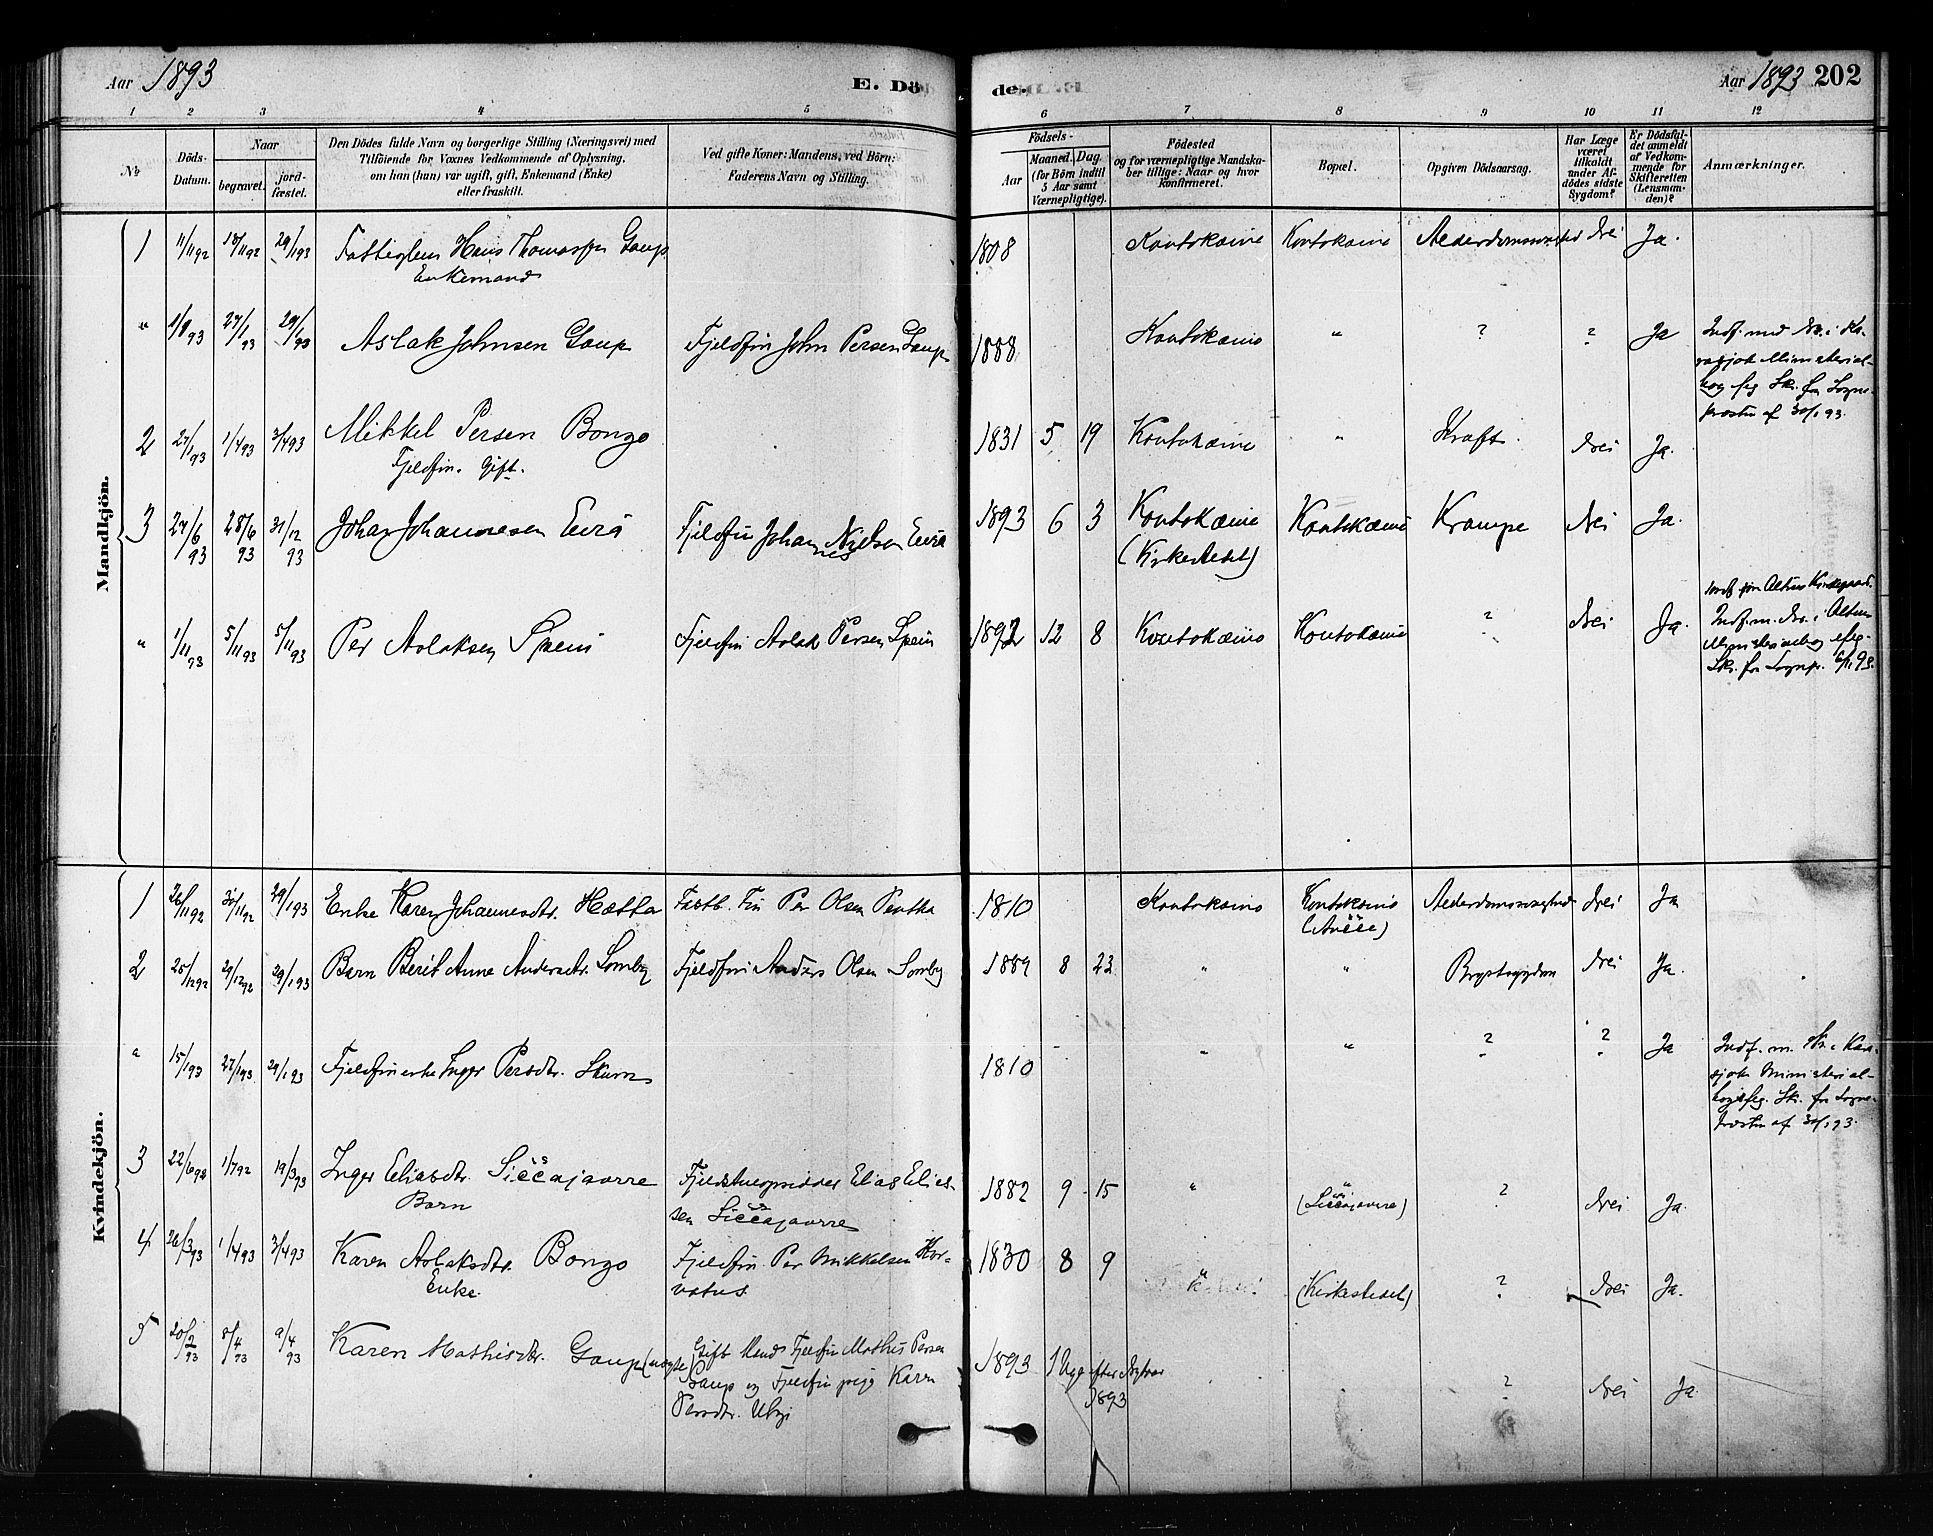 Aar 1893
E. Dö
de.
Aar 1893 202
1 2 3 4 5 6 7 8 9 10 11 12
No
Döds-Datum.
Naar
begravet.
jord-fæstet.
Den Dödes fulde Navn og borgerlige Stilling (Næringsvei) med
Tilföiende for Voxnes Vedkommende af Oplysning,
om han (hun) var ugift, gift, Enkemand (Enke)
eller fraskilt.
Ved gifte Koner: Mandens, ved Börn:
Faderens Navn og Stilling.
Födsels-
Aar
Maaned. Dag.
(for Börn indtil
5 Aar samt
Værnepligtige).
Födested
og for værnepligtige Mandska-
ber tillige: Naar og hvor
konfirmeret.
Bopæl.
Opgiven Dödsaarsag.
Har Læge
været
tilkaldt
under Af-
dödes sidste
Sygdom?
Er Dödsfal-
det anmeldt
af Vedkom-
mende for
Skifteretten
(Lensman-
den)?
Anmærkninger.
Mandkjön.
1 11/11 92 18/11 92 29/1 93 Fattiglem Hans Thomassen Gaup 1808 Koutokæino Koutokæino Alderdomssvaghed Nei Ja.
Enkemand
" 1/1 93 27/1 93 29/1 93 Aslak Johnsen Gaup Fjeldfin John Persen Gaup 1888 Koutokæino " ? ? Ja Indf. med No. i Ka-
rasjok Ministerial-
bog flg Skr. fra Sogne-
prosten af 30/1 93.
2 27/1 93 1/4 93 3/4 93 Mikkel Persen Bongo 1831 5 19 Koutokæino " Kræft. Nei Ja.
Fjeldfin. Gift.
3 27/6 93 28/6 93 31/12 93 Johan Johannesen Eira Fjeldfin Johannes Nielsen Eira 1893 6 3 Koutokæino Koutokæino Krampe Nei Ja.
(Kirkestedet)
" 1/11 93 5/11 93 5/11 93 Per Aslaksen Spein Fjeldfin Aslak Persen Spein 1892 12 8 Koutokæino Koutokæino ? Nei Ja.
Altens Kirkegaard.
Indf. m. No. i Altens
Ministerialbog iflg.
Skr. fra Sognepr. 6/11 93.
Kvindekjön.
1 26/11 92 30/11 92 29/1 93 Enke Karen Johannesdtr. Hætta Fastb. Fin Per Olsen Pentha 1810 Koutokæino Koutokæino Alderdomssvaghed Nei Ja
2 25/12 92 29/12 92 29/1 93 Barn Berit Anne Andersdtr. Somby Fjeldfin Anders Olsen Somby 1889 8 23 " " Brystsygdom Nei Ja.
" 15/1 93 27/1 93 29/1 93 Fjeldfinenke Inger Persdtr. Skum 1810 " " ? ? Ja Indf. m. No. i Kara-
sjok Ministerial-
bog iflg. Skr. fra Sogne-
prosten af 30/1 93.
3 22/6 92 1/7 92 19/3 93 Inger Eliasdtr. Siččajavrre Fjeldstueopsidder Elias Elias-
sen Siččajavrre 1882 9 15 " " (Siččajavrre) ? Nei Ja.
Barn
4 26/3 93 1/4 93 3/4 93 Karen Aslaksdtr. Bongo Fjeldfin Per Mikkelsen Hor-
vatus 1830 8 9 " (Kirkestedet) ? Nei Ja.
Enke.
5 20/2 93 8/4 93 9/4 93 Karen Mathisdtr. Gaup (uægte) Gift Mand Fjeldfin Mathis Persen
Gaup og Fjeldfinpige Karen
Persdtr. Utsi 1893 1 Uge efter Nytaar
1893 ? Nei Ja